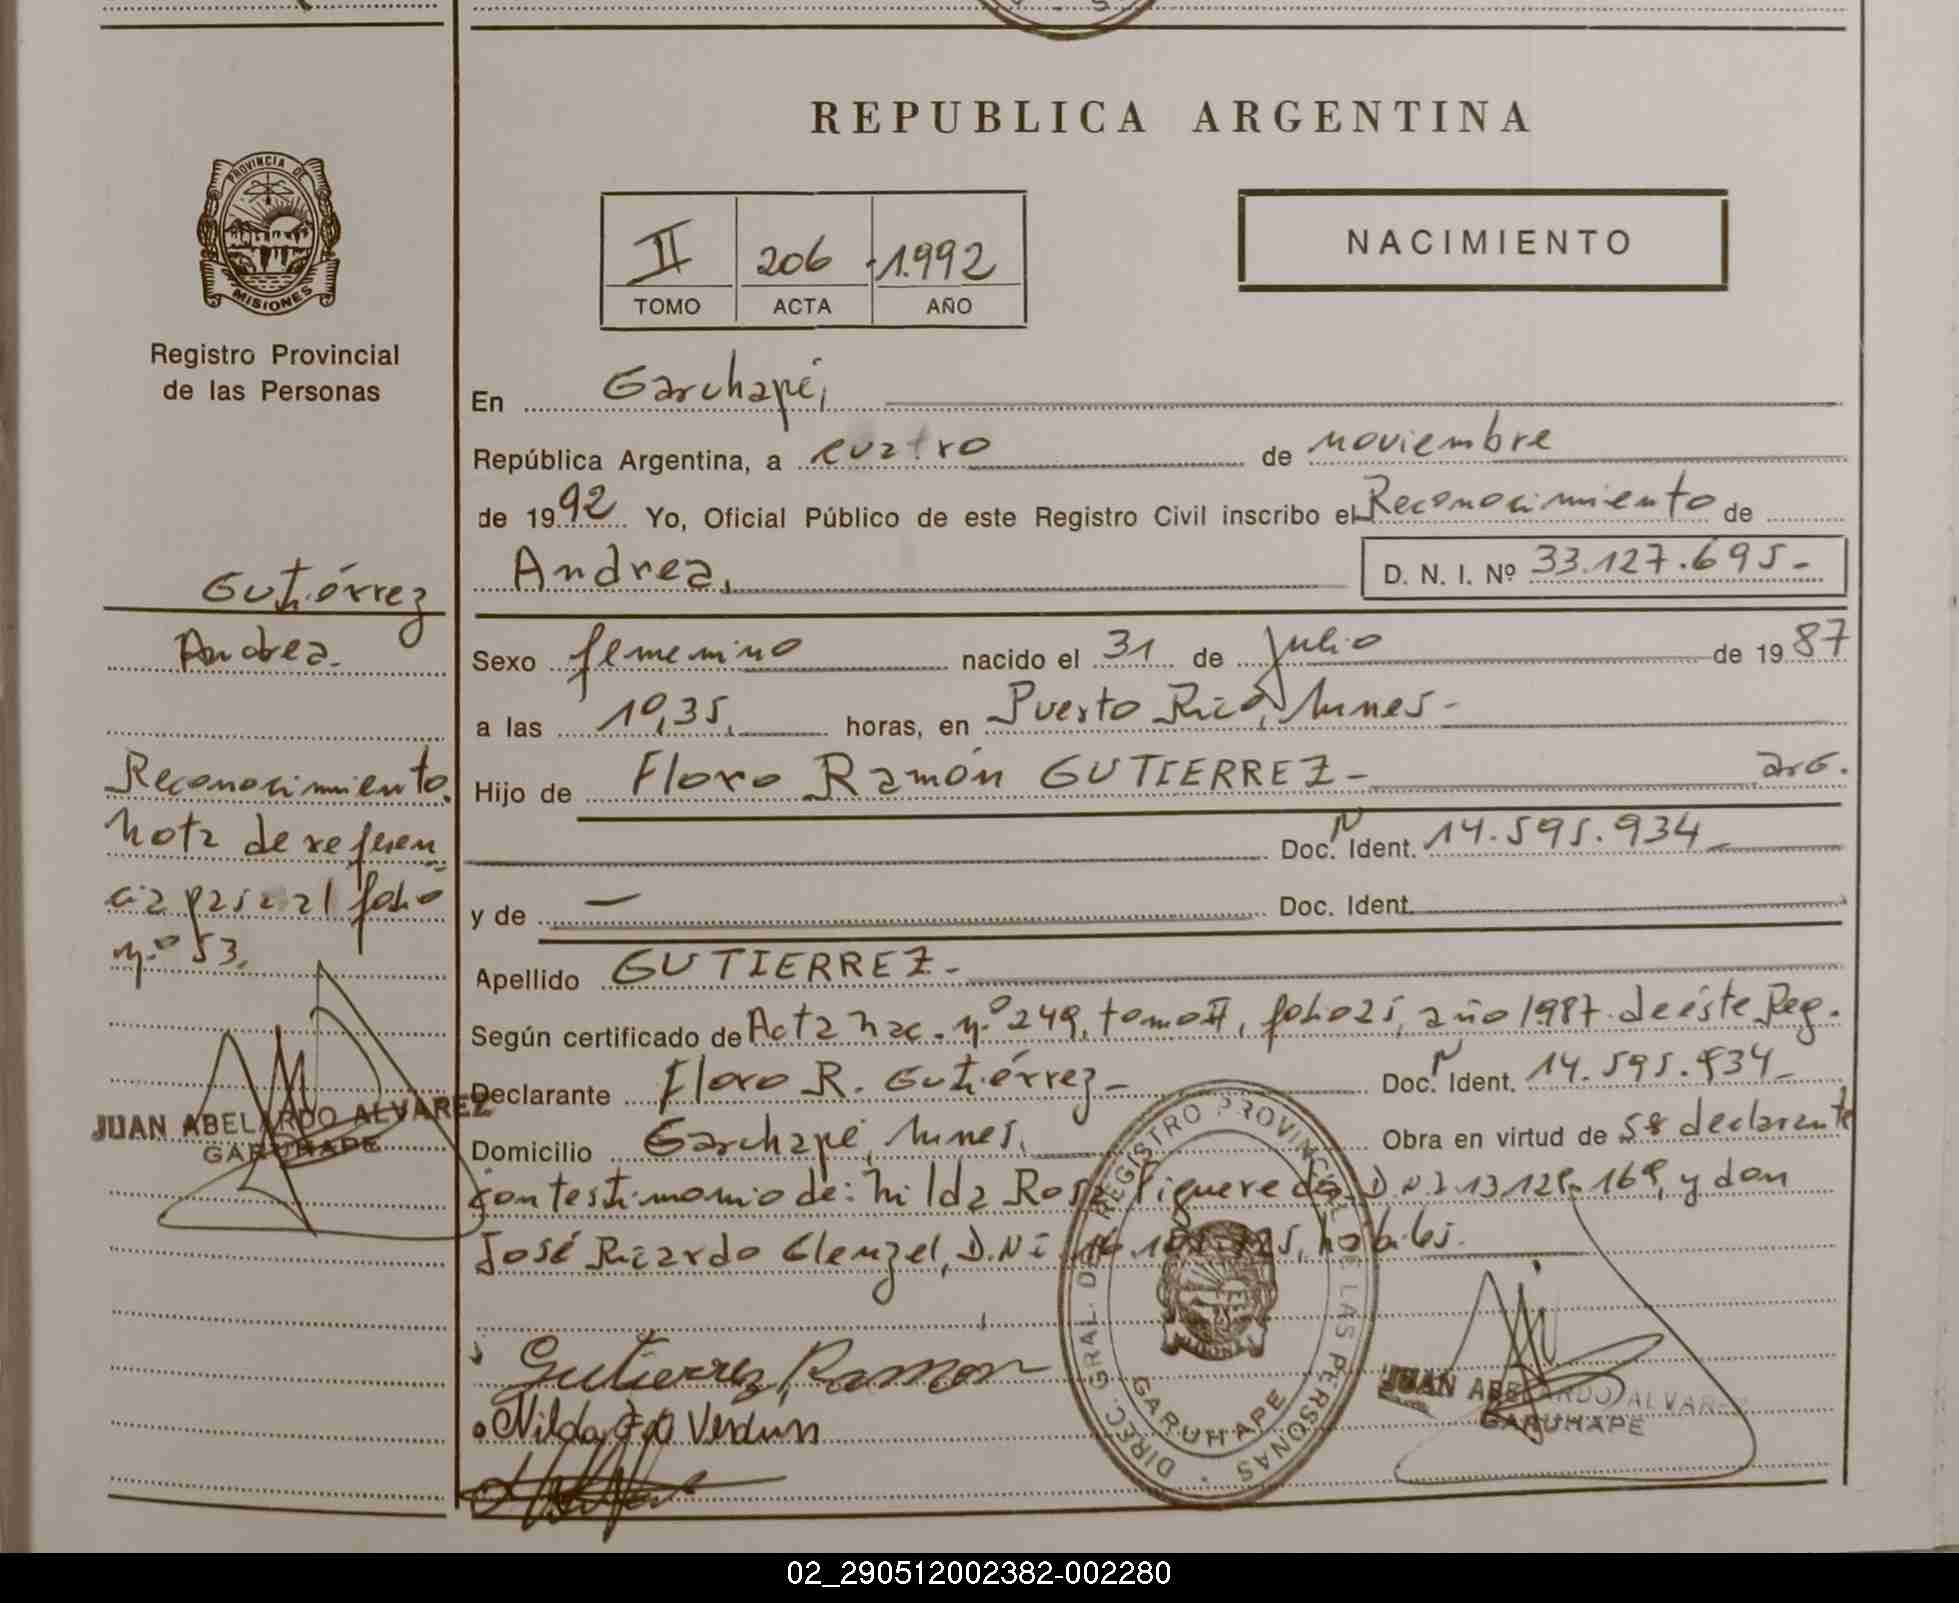 REPUBLICA ARGENTINA
PROVINCIA DE
MISIONES
Registro Provincial
de las Personas
II 206 1.992
TOMO ACTA AÑO
NACIMIENTO
En Garuhapé,
República Argentina, a cuatro de noviembre
de 1992 Yo, Oficial Público de este Registro Civil inscribo el Reconocimiento de
Andrea, D. N. I. Nº 33.127.695.-
Sexo femenino nacido el 31 de Julio de 1987
a las 10,35, horas, en Puerto Rico, Mnes.-
Hijo de Floro Ramón GUTIERREZ- arg.
Doc. N Ident. 14.595.934
y de — Doc. Ident.
Apellido GUTIERREZ.-
Según certificado de Acta Nac. n.º 249, tomo II, folio 25, año 1987 de éste Reg.
Declarante Floro R. Gutiérrez- Doc. N Ident. 14.595.934
Domicilio Garuhapé, Mnes. Obra en virtud de ser declarante
con testimonio de: Nilda Rosa D.N.I 13.129.169, y don
José Ricardo Glenzel, D.N.I hábiles.
Gutierrez Ramon
Nilda Verdun
Gutiérrez
Andrea.
Reconocimiento.
Nota de referen
cia pasa al folio
n.º 53.
JUAN ABELARDO ALVAREZ
GARUHAPE
DIREC. GRAL. DEL REGISTRO PROVINCIAL DE LAS PERSONAS
GARUHAPE
JUAN ABELARDO ALVAREZ
GARUHAPE
02_290512002382-002280